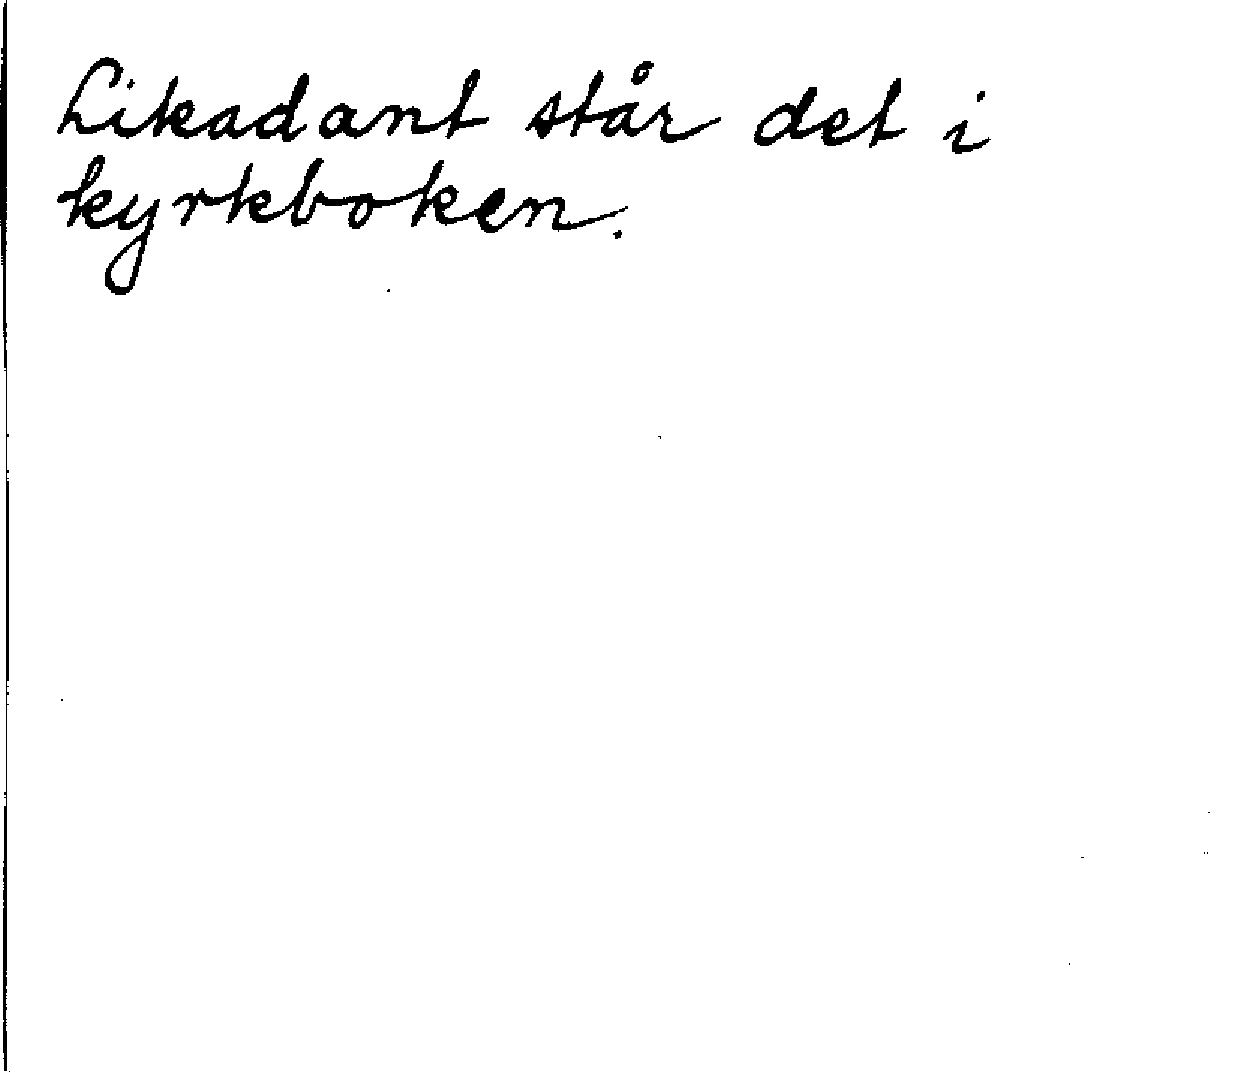 Likadant står det i
kyrkboken.